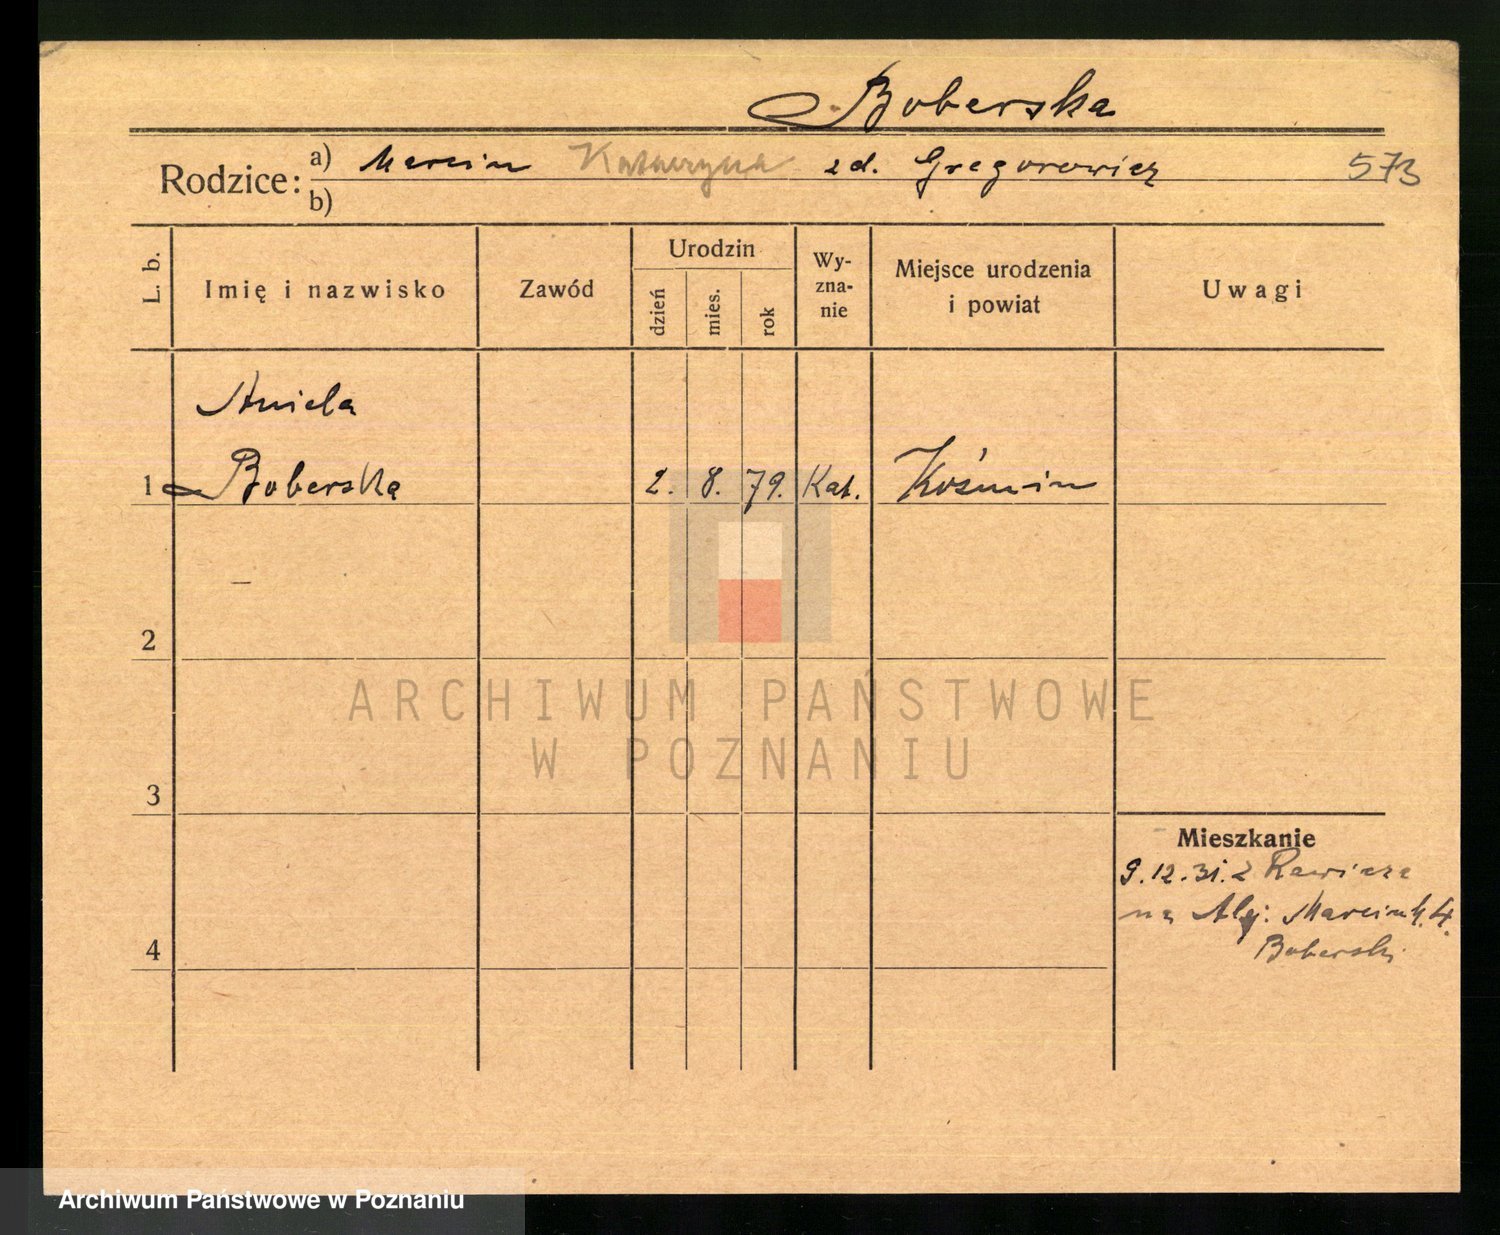 Boberska
Rodzice: a) Marcin Katarzyna zd. Gregorowicz 573
b)
L. b. Imię i nazwisko Zawód Urodzin dzień mies. rok Wy-zna-nie Miejsce urodzenia i powiat Uwagi
Aniela
1 Boberska 2. 8. 79. Kat. Koźmin
2
ARCHIWUM PAŃSTWOWE
W POZNANIU
3
Mieszkanie
9.12.31. z Rawicza
na Alej. Marcink. 4.
4 Boberski
Archiwum Państwowe w Poznaniu